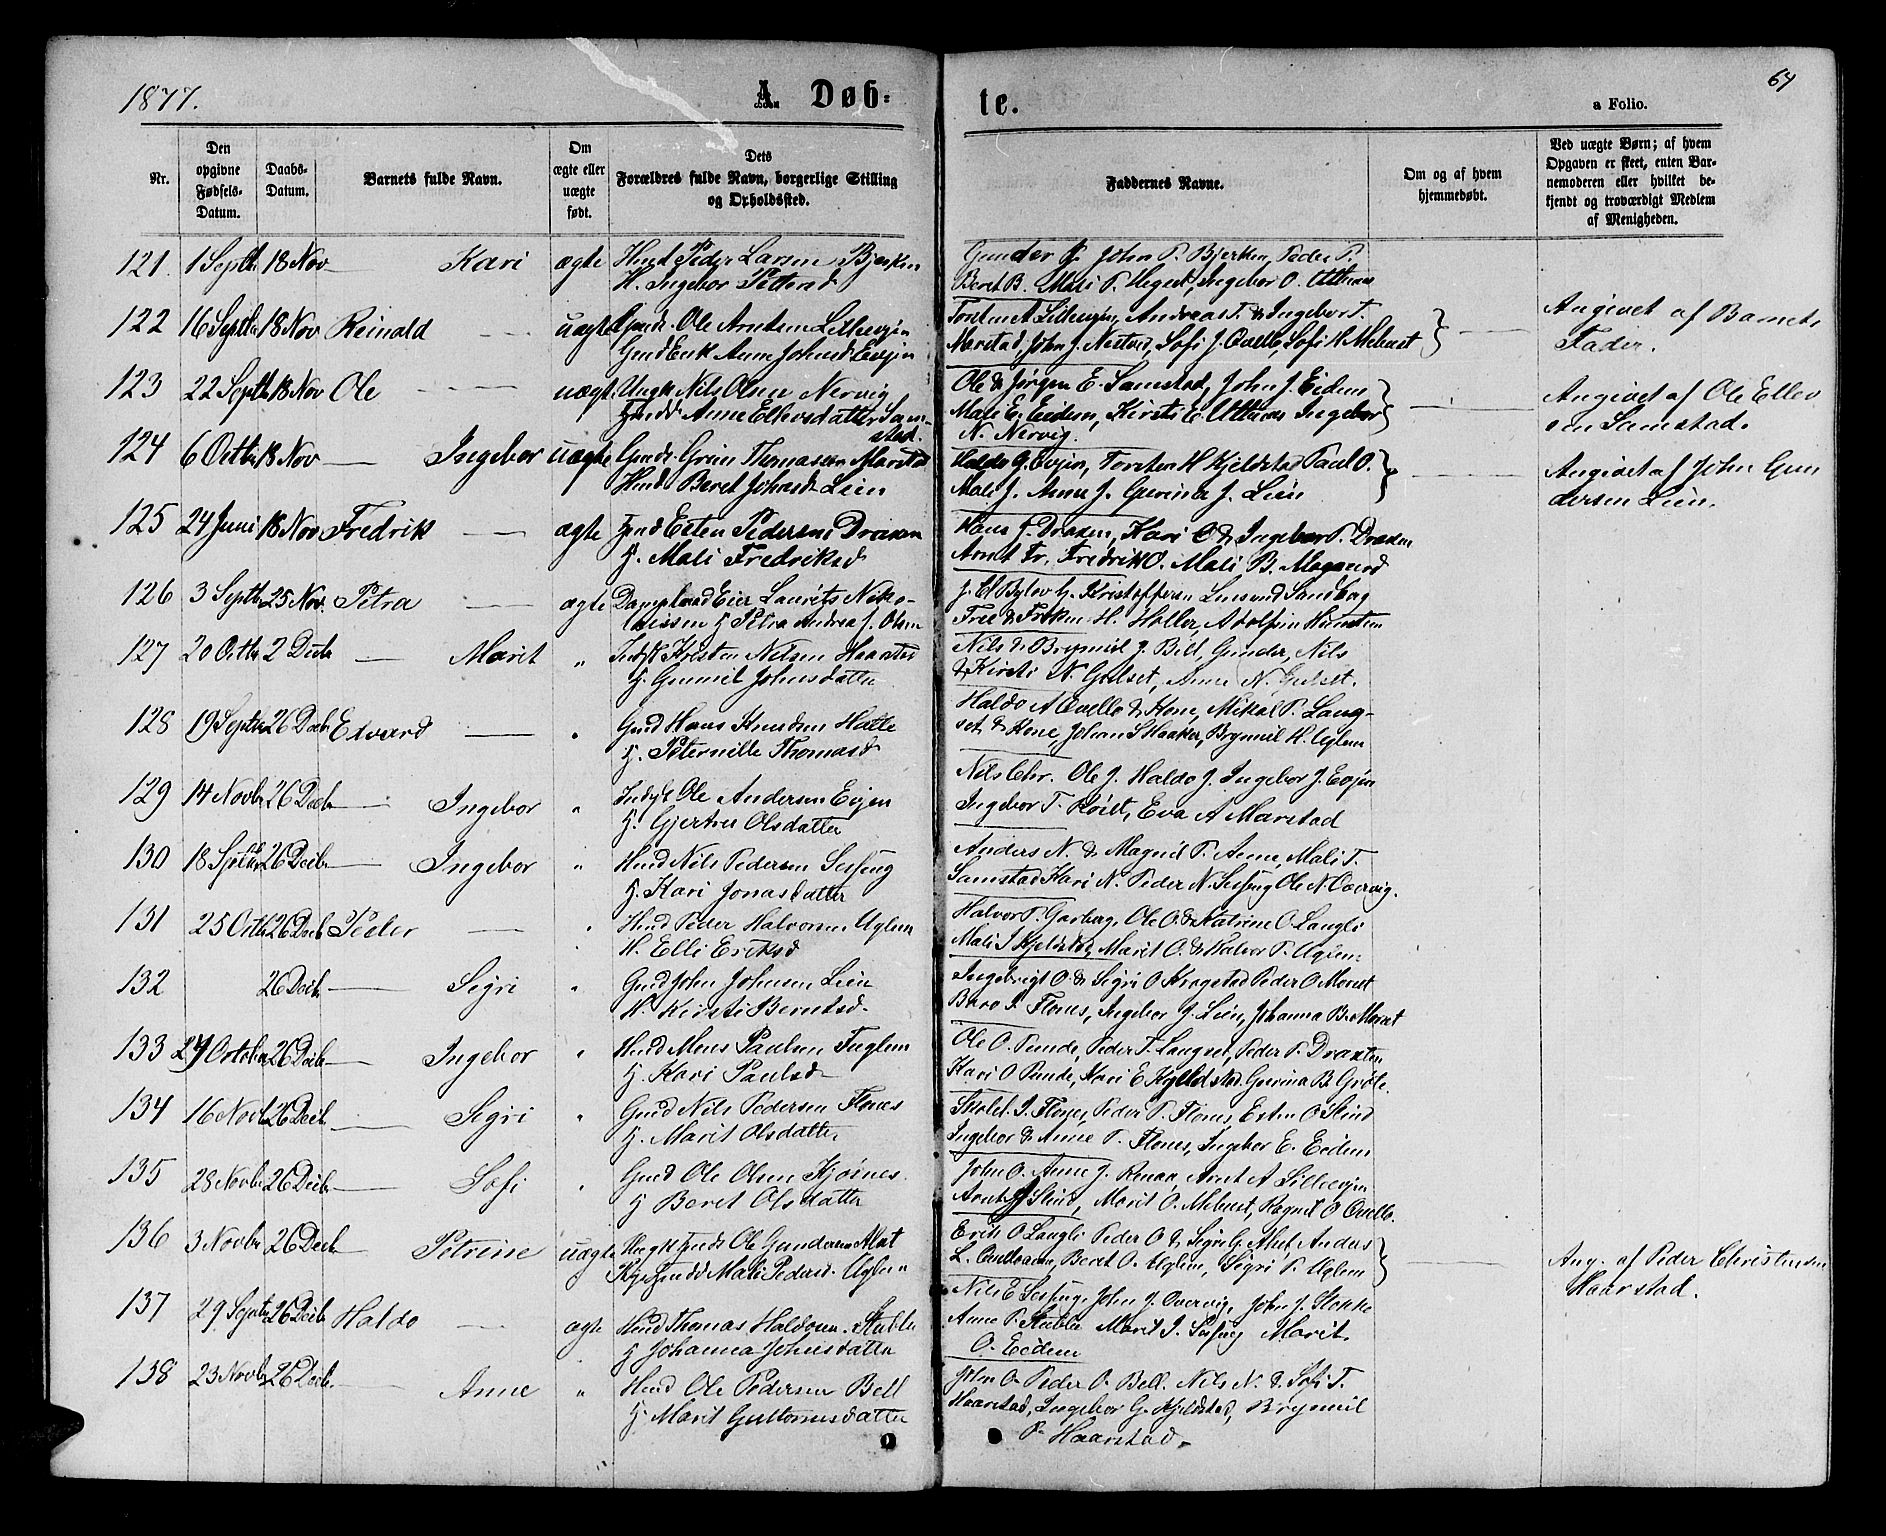 1877.
A Døb-
te.
64
a Folio.
Nr.
Den opgivne Fødsels-Datum.
Daabs-Datum.
Barnets fulde Navn.
Om ægte eller uægte født.
Dets Forældres fulde Navn, borgerlige Stilling og Opholdssted.
Faddernes Navne.
Om og af hvem hjemmedøbt.
Ved uægte Børn; af hvem Opgaven er skeet, enten Barnemoderen eller hvilket bekjendt og troværdigt Medlem af Menigheden.
121. 1 Septb 18 Nov — Kari ægte Huud Peder Larsen Bjerken
H. Ingebor Petersd
Gunder P. John P. Bjerken, Peder P.
Beret B. Mali P. Heget, Ingebor O. Uthuus
122 16 Septb 18 Nov Reinald — uægte Gmd. Ole Arntsen Lillevjen
Gmd Enk Anne Johnsd Evjen
Torsten A Lillevjen, Andreas T. & Ingebor T.
Marstad, John J. Nestved, Sofi J. Qvello, Sofi H Mehust
Angivet af Barnets
Fader.
123 22 Septb 18 Nov Ole — uægt. Ungk Nils Olsen Nervig
Anne Ellevsdatter Sam-
stad.
Ole & Jørgen E. Samstad, John J. Eidem
Mali E. Eidem, Kirsti E. Uthuus Ingebor
N. Nervig.
Angivet af Ole Ellev
sen Samstad.
124 6 Octb 18 Nov — Ingebor uægte Gmd. Thomasen Marstad
Huud Beret Johnsd Lien
Haldo G. Evjen, Torsten H Kjeldstad Paul O.
Mali J. Anne J. Gurina J. Lien
Angivet af John Gun
dersen Lien.
125 24 Juni 18 Nov Fredrik — ægte Esten Pedersen Draxen
H. Mali Fredriksd
Hans J. Draxen, Kari O & Ingebor P. Draxen
Arnt Fr. Fredrik O. Mali B. Mogaard
126 3 Septb 25 Nov. Petra — ægte Dampsaad Eier Laurits Niko-
laisen H Petra Andrea J. Olsen
G. Kristoffersen Sandberg
Frue & Frøken H. Holler, Adolfin
127 20 Octb 2 Decb — Marit „ Indst Kresten Nilsen Haarstad
H. Gunnil Johnsdatter
Nils & Brynnil J. Bell, Gunder, Nils
& Kirsti N. Gulset, Anne N. Gulset.
128 19 Septb 26 Decb Edvard — „ Gmd Hans Knudsen Halle
H. Peternille Thomasd
Haldo A Qvello & Kone, Mikal P. Lang-
set & Kone, Johan S Haaker, Brynnil H. Uglem
129 14 Novb 26 Decb — Ingebor „ Indst Ole Andersen Evjen
H. Gjertru Olsdatter
Nils Chr. Ole J. Haldo J. Ingebor J. Evjen
Ingebor T. Eva A Marstad
130 18 Septb 26 Decb — Ingebor „ Huud Nils Pedersen Sesseng
H. Kari Jonasdatter
Anders N. & Magnil P. Anne, Mali T.
Samstad Kari N. Peder N. Sesseng Ole N. Overvig.
131 25 Octb 26 Decb Peder — „ Huud Peder Halvorsen Uglem
H. Elli Eriksd
Halvor P. Garberg, Ole O. & Katrine O. Langli
Mali J Kjeldstad, Marit O. & Halvor P. Uglem.
132 26 Decb — Sigri „ Gmd John Johnsen Lien
H. Kirsti Berntsd.
Ingebrigt O. & Sigri O Kragstad Peder O Moret
Baro J. Flones, Ingebor J. Lien, Johanna B. Moret
133 27 October 26 Decb — Ingebor „ Huud Mons Paulsen Fuglem
H. Kari Paulsd
Ole O. Pande, Peder T. Langset, Peder P. Draxten
Kari O Pande, Kari E Kjeldstad. Gurina B. Grøte.
134 16 Novb 26 Decb. — Sigri „ Gmd Nils Pedersen Flones
H. Marit Olsdatter
J. Flones, Peder P. Flones, Esten O Slind
Ingebor & Anne P. Flones, Ingebor E. Eidem
135 28 Novb 26 Decb — Sofi „ Gmd Ole Olsen Kjøsnes
H Beret Olsdatter
John O. Anne J. Renaa, Arnt A Lillevjen
Arnt J Slind, Marit O. Mehust, Ragnil O Qvello.
136 3 Novb 26 Decb — Petrine uægte Ungk Ole Gundersen Alset
Mali Pedersd. Uglem
Erik O Langli Peder O & Sigri G. Alset, Anders
L. Beret O. Uglem, Sigri P. Uglem
Ang. af Peder Christensen
Haarstad.
137 29 Septb 26 Decb Haldo — ægte Huud Thomas Haldosen Stubbe
H Johanna Johnsdatter
Nils E Sesseng, John J. Overvig, John J. Stokke
Anne P. Stubbe Marit J. Sesseng Marit
O. Eidem
138 23 Novb 26 Decb. — Anne „ Huud Ole Pedersen Bell
H. Marit Guttormsdatter
John O. Peder O. Bell. Nils N. & Sofi T.
Haarstad, Ingebor G. Kjeldstad, Brynnil
P. Haarstad.